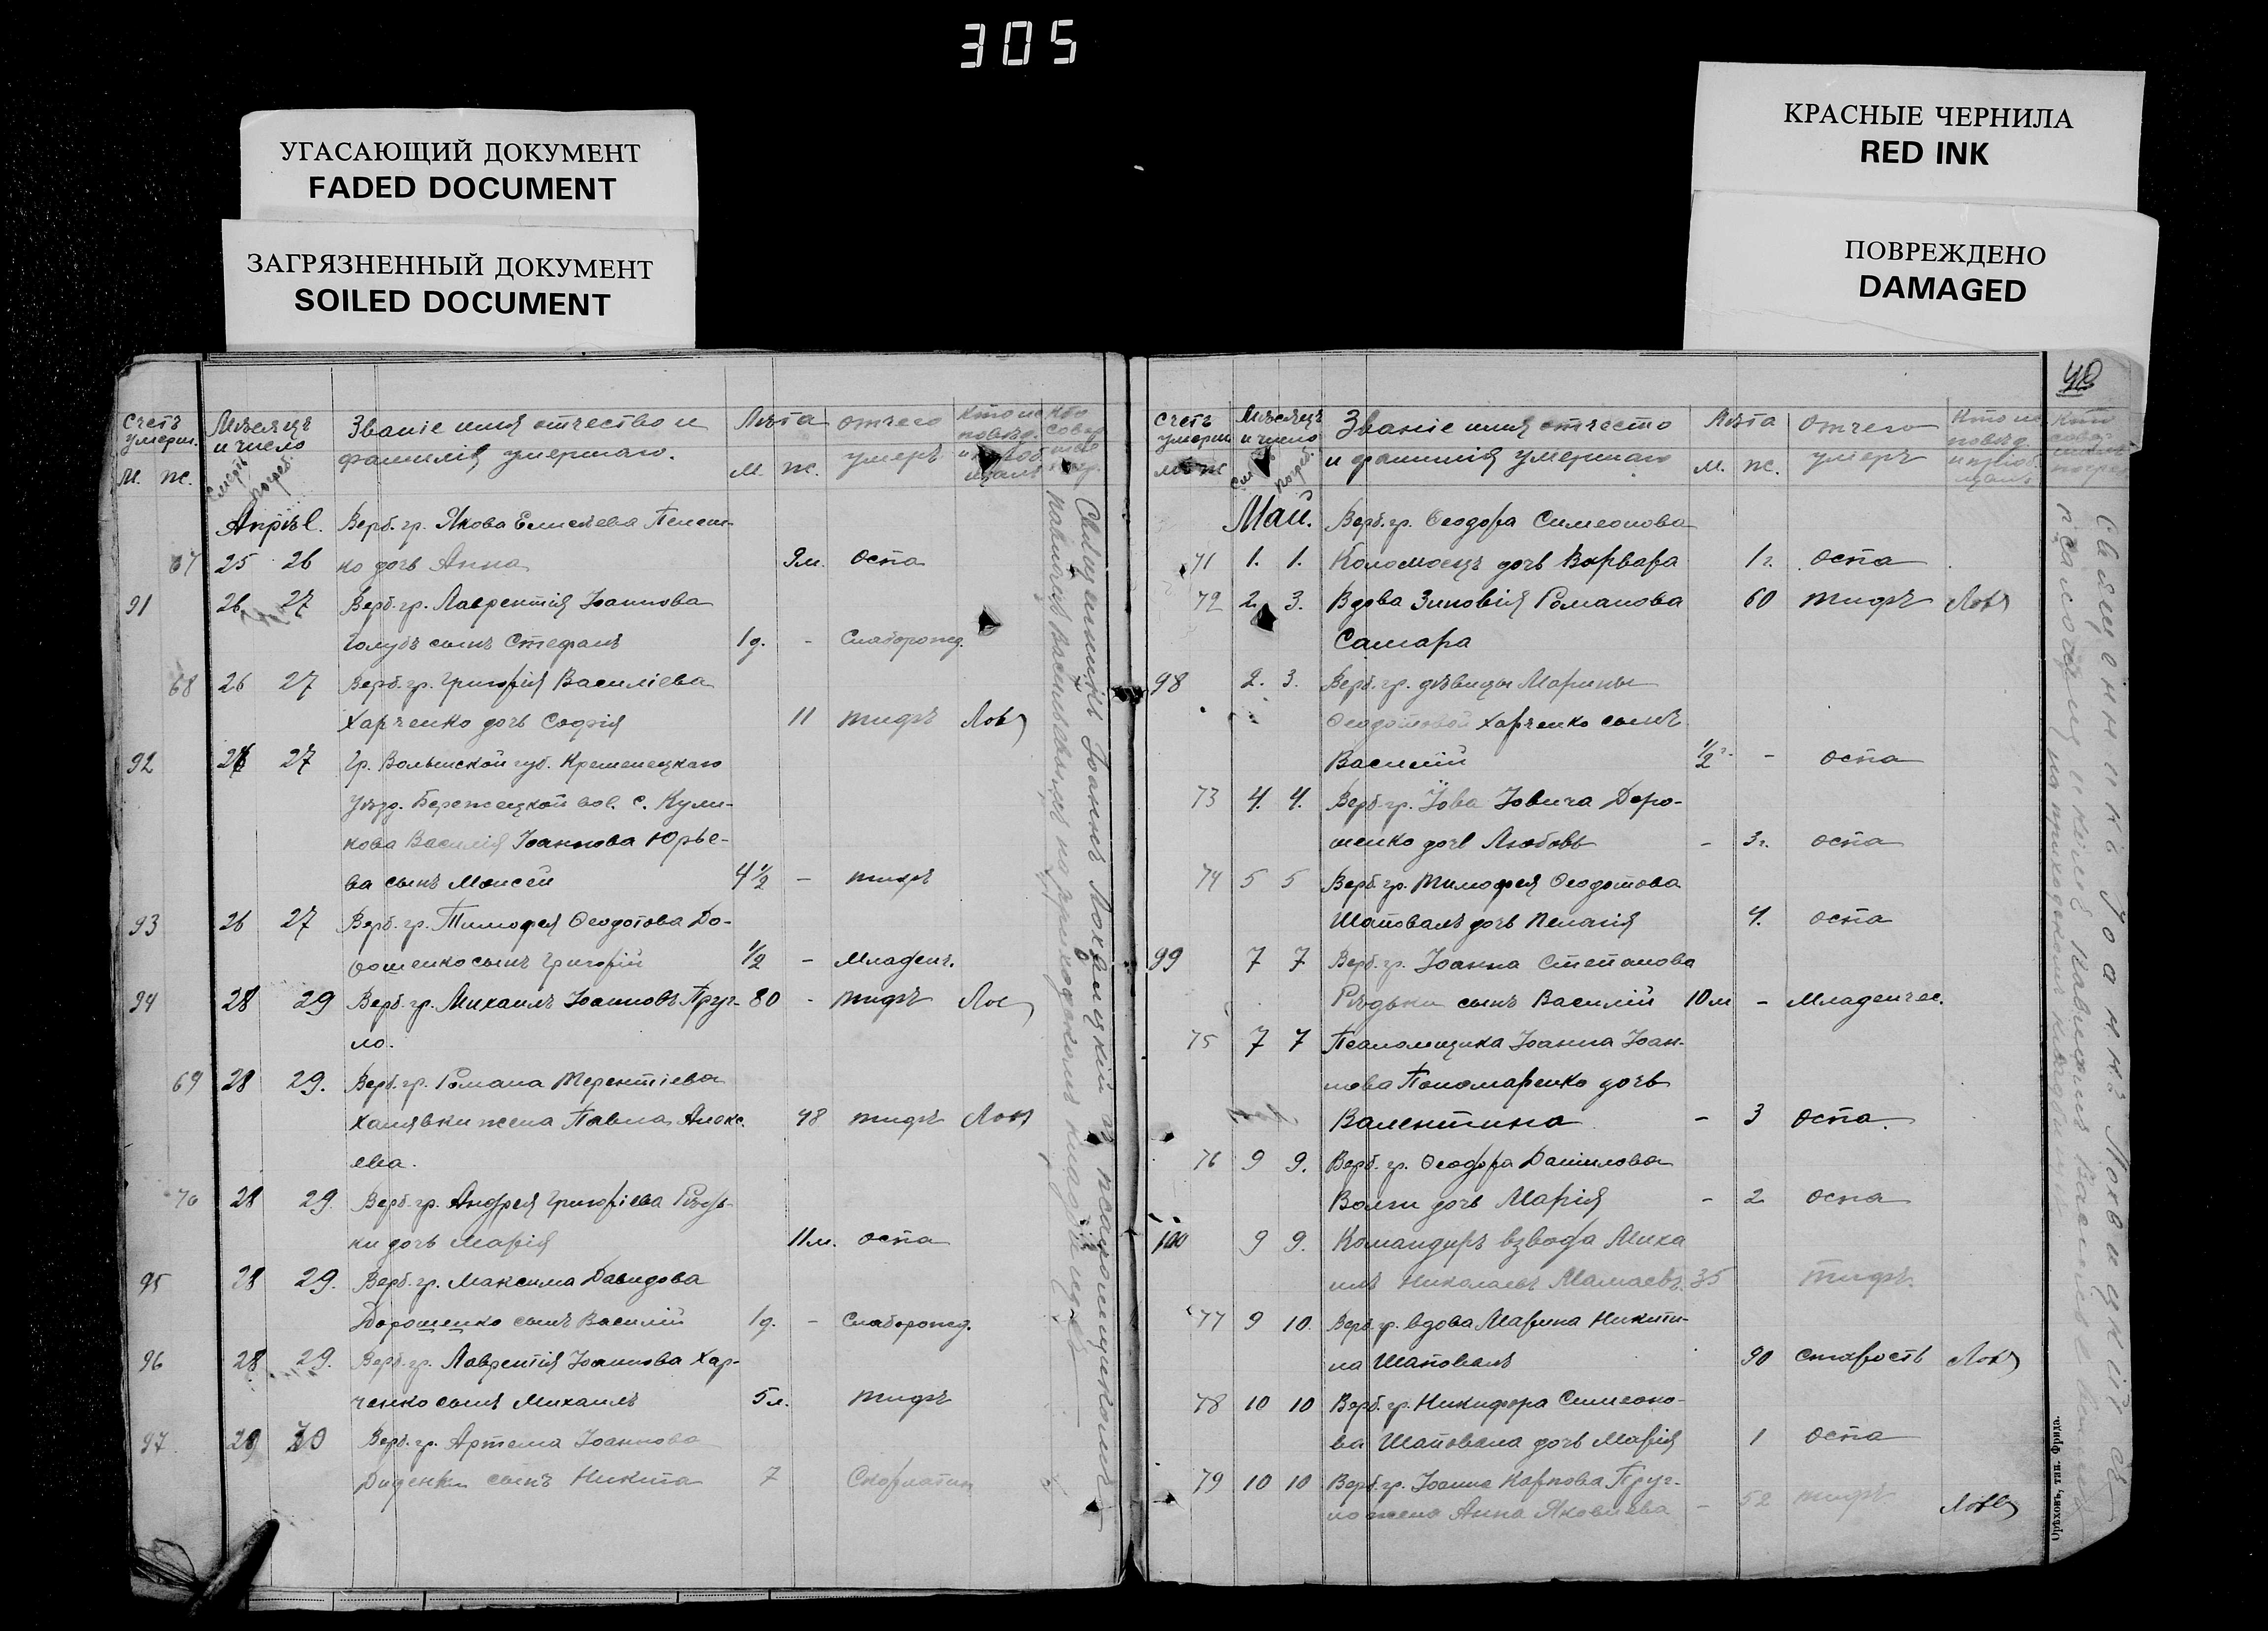 305
УГАСАЮЩИЙ ДОКУМЕНТ
FADED DOCUMENT
ЗАГРЯЗНЕННЫЙ ДОКУМЕНТ
SOILED DOCUMENT
КРАСНЫЕ ЧЕРНИЛА
RED INK
ПОВРЕЖДЕНО
DAMAGED
Счетъ умерш. Мѣсяцъ и число Званіе имя отчество и фамилія умершаго. Лѣта отчего умеръ
М. Ж. смерть погреб. М. Ж.
Апрѣл. Верб. гр. Якова Елисеева
67 25 26 но дочь Анна 9м. оспа
91 26 27 Верб. гр. Лаврентія Іоаннова
Голубъ сынъ Стефанъ 1д. - Слаборожд.
68 26 27 Верб. гр. Григорія Василіева
Харченко дочь Софія 11 тифъ
92 26 27 Гр. Волынской губ. Кременецкаго
уѣзд. Бережецкой вол. с. Кули-
кова Василія Іоаннова Юрье-
ва сынъ Моисей 4 1/2 - тифъ
93 26 27 Верб. гр. Тимофея Ѳеодотова До-
рошенко сынъ Григорій 1/2 - Младенч.
94 28 29 Верб. гр. Михаилъ Іоанновъ Пруг- 80 - тифъ
ло.
69 28 29. Верб. гр. Романа Терентіева
Халявки жена Павла Алекс. 48 тифъ
ева.
70 28 29. Верб. гр. Андрея Григоріева Рѣдь-
ки дочь Марія 11м. оспа
95 28 29. Верб. гр. Максима Давидова
Дорошенко сынъ Василій 1д. - Слаборожд.
96 28 29. Верб. гр. Лаврентія Іоаннова Хар-
ченко сынъ Михаилъ 5л. тифъ
97 29 30 Верб. гр. Артема Іоаннова
Диденки сынъ Никита 7 Скорлатин
Священникъ Іоаннъ Лохвицкій съ псаломщикомъ
Павломъ Васильевымъ на приходскомъ кладбищѣ
40
Счетъ умерш Мѣсяцъ и число Званіе имя отчество и фамилія умершаго Лѣта Отчего умеръ
М Ж погреб. М. Ж.
Май. Верб. гр. Ѳеодора Симеонова
71 1. 1. Коломоецъ дочь Варвара 1г. оспа
72 2 3. Вдова Зиновія Романова 60 тифъ
Самара
98 2. 3. Верб. гр. дѣвицы Марины
Ѳеодотовой Харченко сынъ
Василій 1/2 г. - оспа
73 4. 4. Верб. гр. Іова Іовича Доро-
шенко дочь Любовь - 3г. оспа
74 5 5 Верб. гр. Тимофея Ѳеодотова
Шаповалъ дочь Пелагія 4. оспа
99 7 7 Верб. гр. Іоанна Степанова
Рѣдьки сынъ Василій 10м - Младенчес.
75 7 7 Псаломщика Іоанна Іоан-
нова Пономаренко дочь
Валентина - 3 оспа.
76 9 9. Верб. гр. Ѳеодора Даниилова
Волги дочь Марія - 2 оспа
100 9 9. Командиръ взвода Миха
илъ Николаевъ Мамаевъ. 35 тифъ.
77 9 10. Верб. гр. вдова Марина Никити-
на Шаповалъ 90 старость
78 10 10 Верб. гр. Никифора Симеоно-
ва Шаповала дочь Марія 1 оспа
79 10 10 Верб. гр. Іоанна Карпова Пруг-
ло жена Анна Яковлева - 52 тифъ
Священникъ Іоаннъ Лохвицкій съ
псаломщикомъ Павломъ Васильевымъ
на приходскомъ кладбищѣ
Орѣховъ, тип. Фрида.